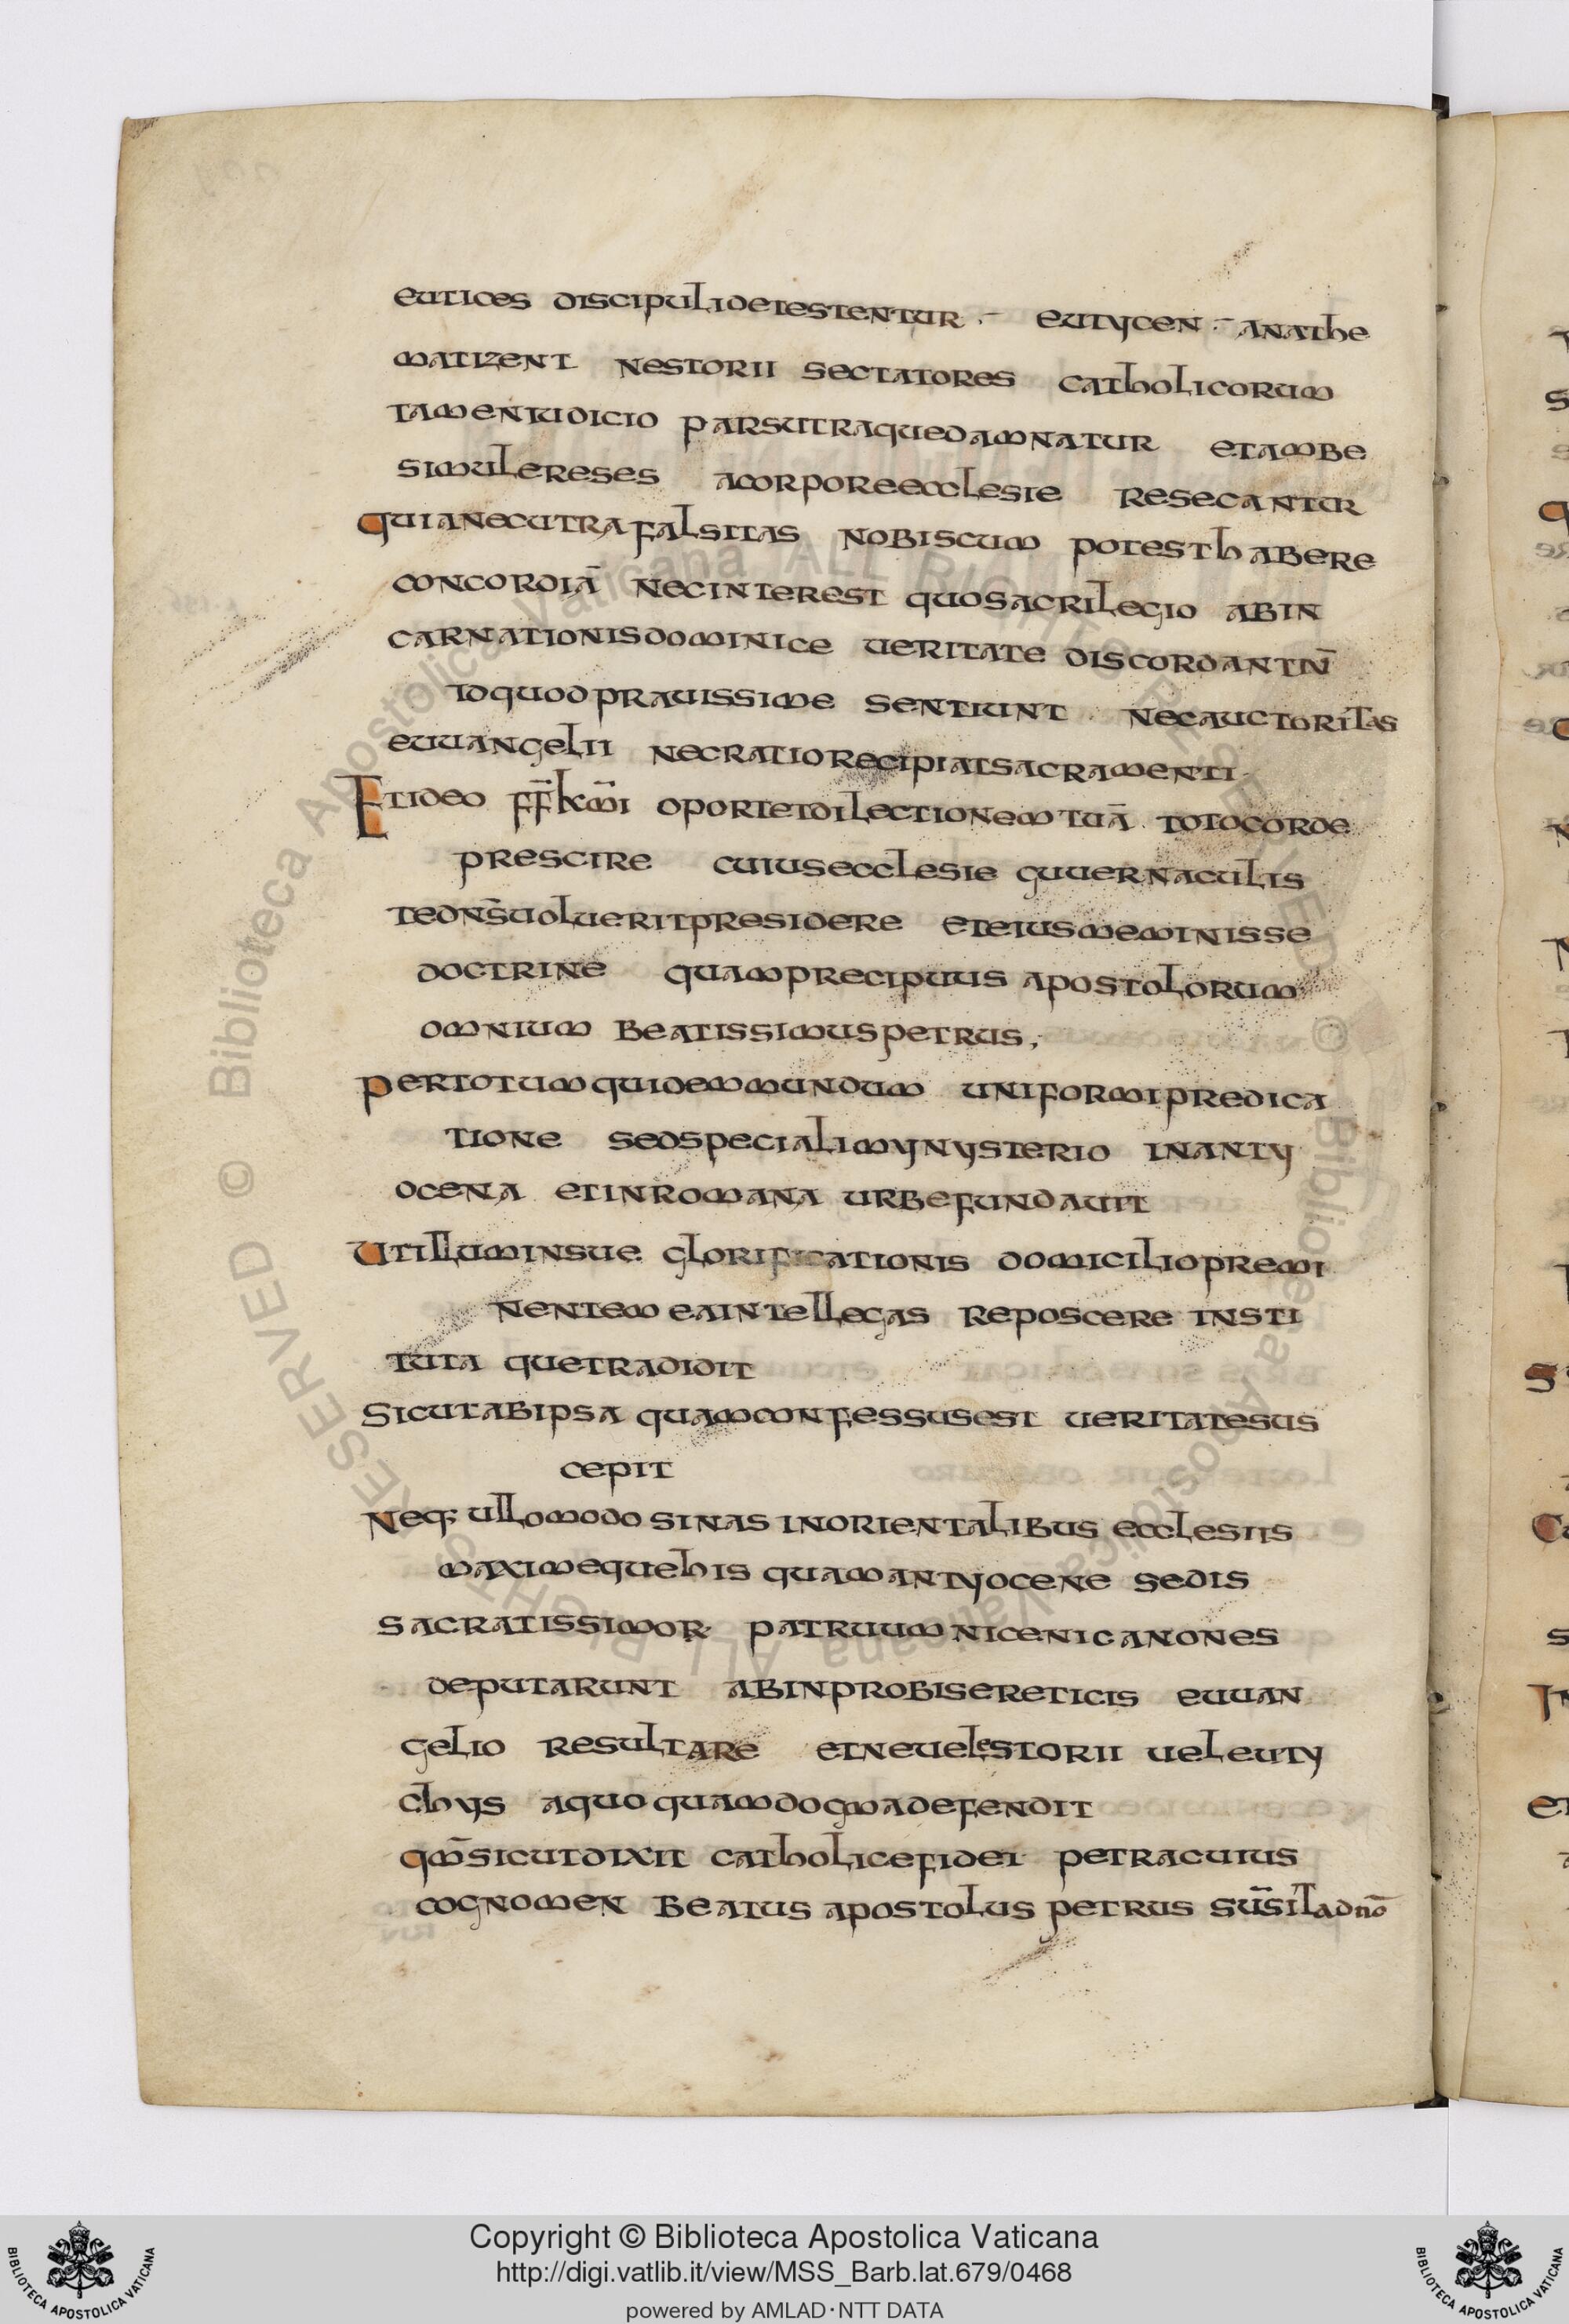 eutices discipuli detestentur .- eutycen .- anathe
matizent nestorii sectatores catholicorum
tamen iudicio pars utraque damnatur et ambe
simul ereses a corpore ecclesie resecantur
quia nec utra falsitas nobiscum potest habere
concordiā nec interest quo sacrilegio ab in
carnationis dominice ueritate discordant in̄
id quod prauissime sentiunt . nec auctoritas
euuangelii nec ratio recipiat sacramenti.
Et ideo f̄f̄ km̄i oportet dilectionem tuā toto corde
prescire cuius ecclesie guuernaculis
te dn̄s uoluerit presidere et eius meminisse
doctrine quam precipuus apostolorum
omnium beatissimus petrus;
per totum quidem mundum uniformi predica
tione sed speciali mynysterio in anty
ocena et in romana urbe fundauit
Ut illum in sue glorificationis domicilio premi
nentem ea intellegas reposcere insti
tuta que tradidit
Sicut ab ipsa quam confessus est ueritate sus
cepit
Neq; ullo modo sinas in orientalibus ecclesiis
maximeque his quam antyocene sedis
sacratissimor patruum niceni canones
deputarunt ab inprobis ereticis euuan
gelio resultare et ne uel estorii uel euty
chys a quo quam dogma defendit
qm̄ sicut dixit catholice fidei petra cuius
cognomen beatus apostolus petrus sūsit ad nō
Copyright © Biblioteca Apostolica Vaticana
http://digi.vatlib.it/view/MSS_Barb.lat.679/0468
powered by AMLAD·NTT DATA
BIBLIOTECA APOSTOLICA VATICANA
BIBLIOTECA APOSTOLICA VATICANA
© Biblioteca Apostolica Vaticana ALL RIGHTS RESERVED © Biblioteca Apostolica Vaticana ALL RIGHTS RESERVED